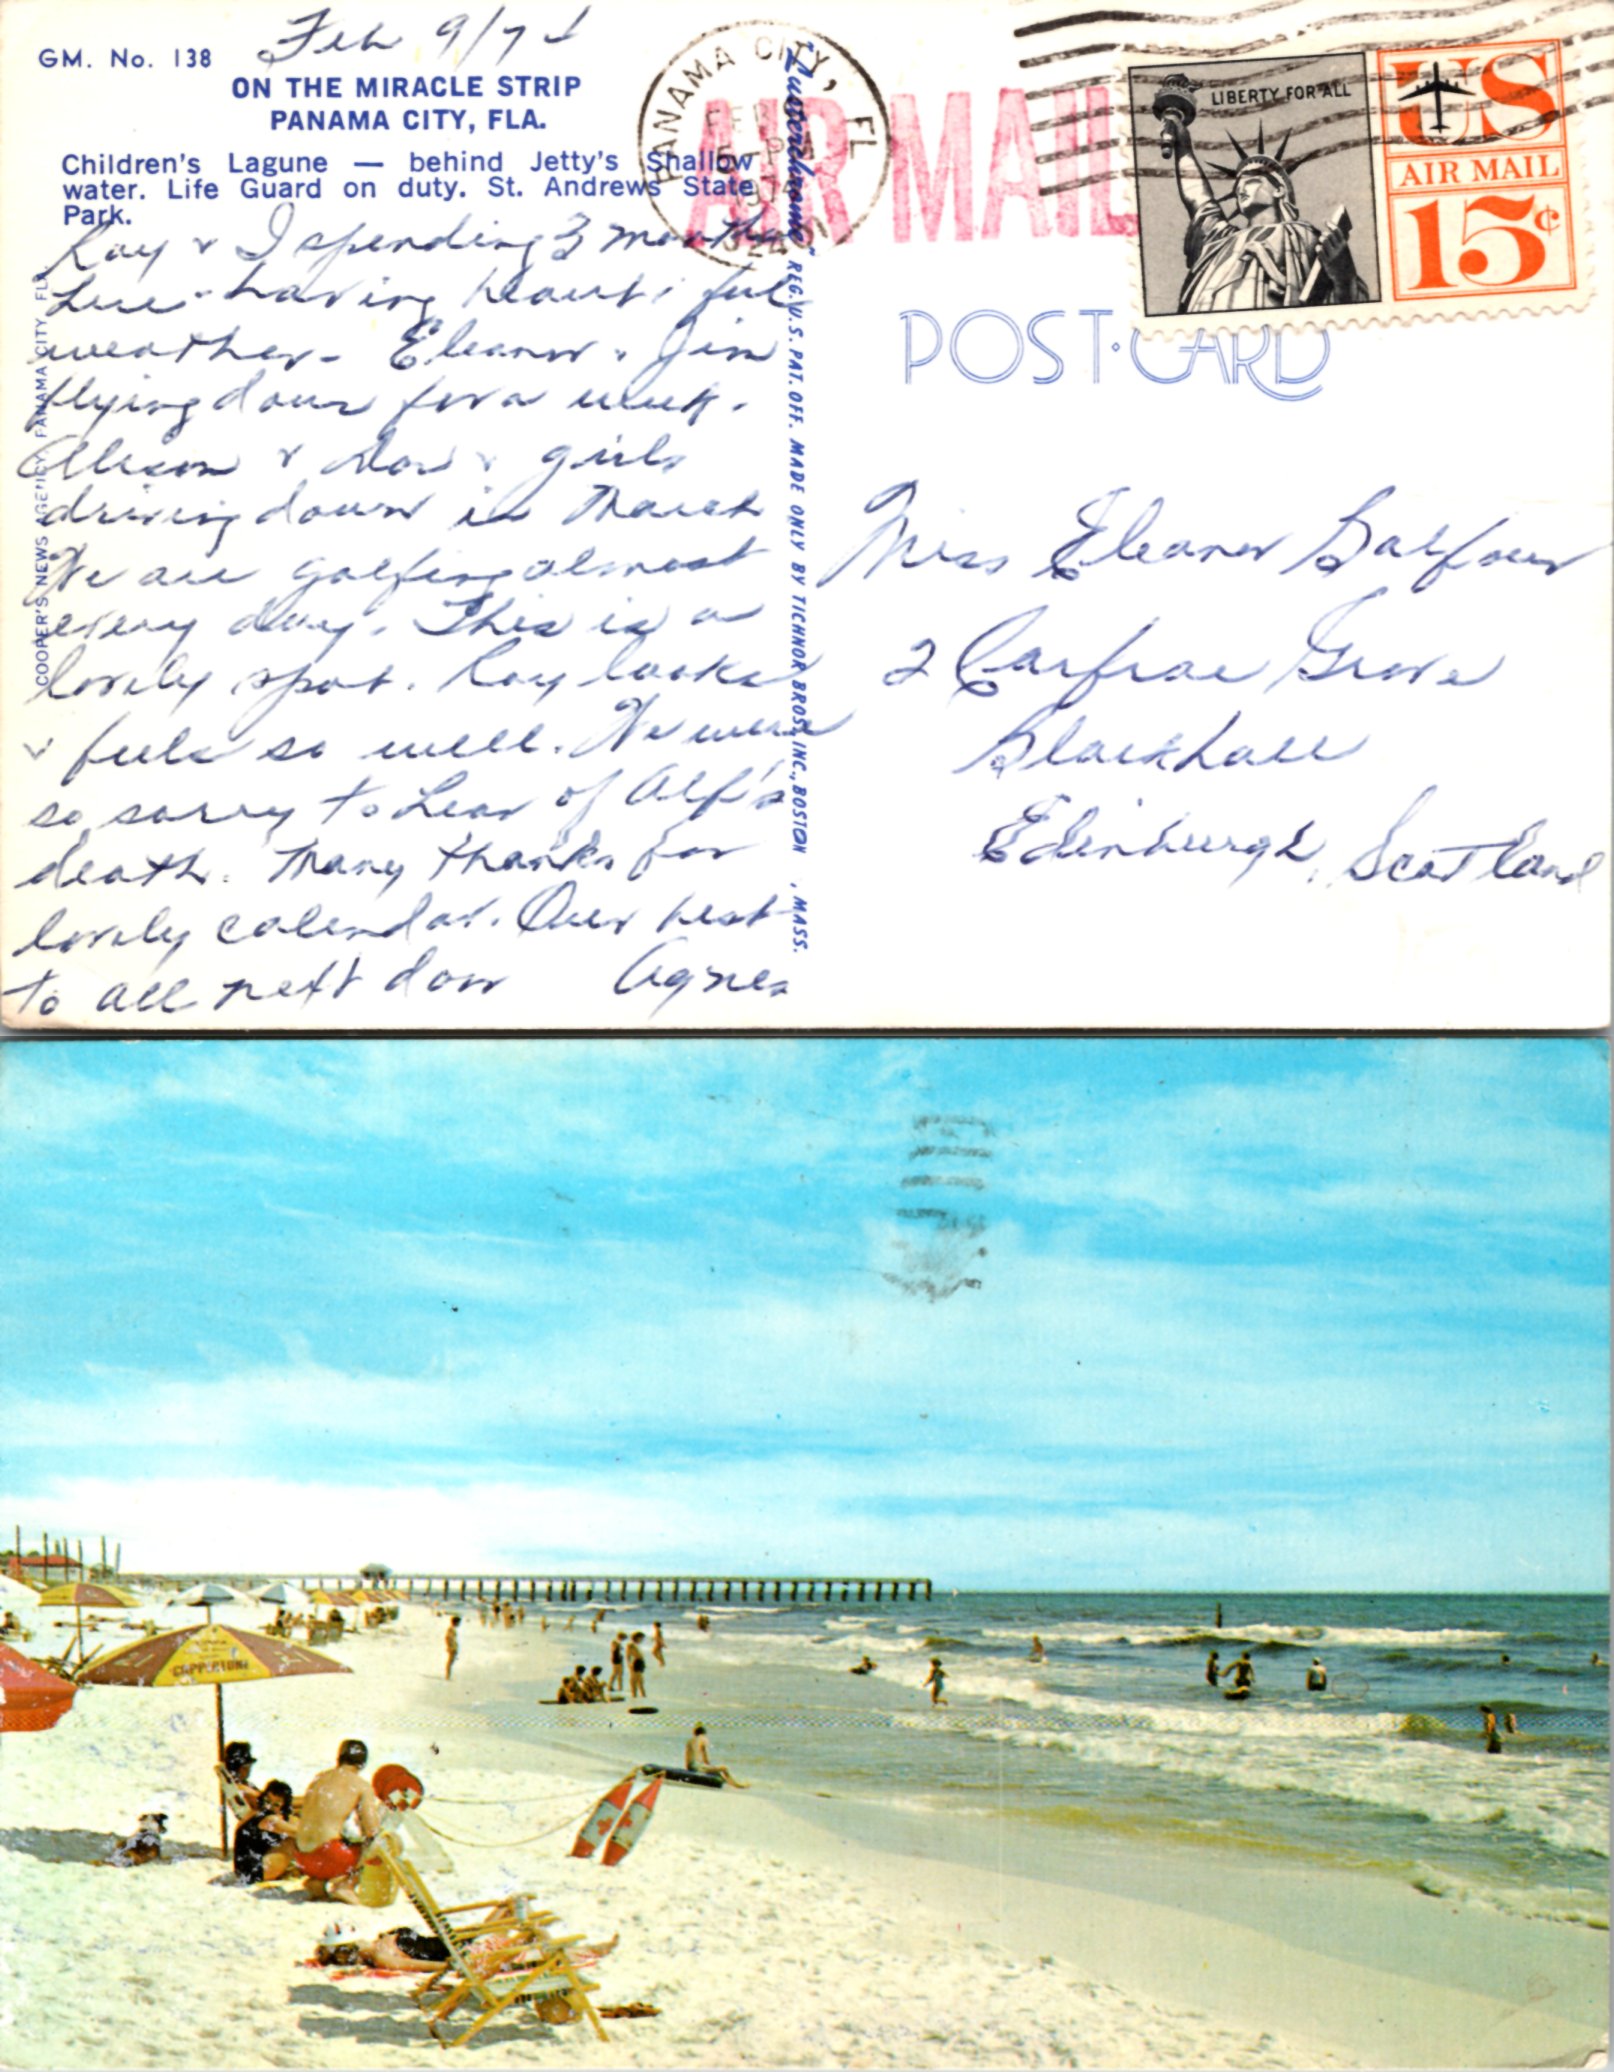 GM. No. 138
Feb 9/74
ON THE MIRACLE STRIP
PANAMA CITY, FLA.
Children's Lagune — behind Jetty's Shallow
water. Life Guard on duty. St. Andrews State
Park.
Ray & I spending 3 months
here - having beautiful
weather - Eleanor & Jim
flying down for a week.
Alison & Don & girls
driving down in March
We are golfing almost
every day. This is a
lovely spot. Ray looks
& feels so well. We were
so sorry to hear of Alf's
death. Many thanks for
lovely calendar. Our best
to all next door Agnes
COOPER'S NEWS AGENCY, PANAMA CITY, FLA.
"Lusterchrome" REG. U.S. PAT. OFF. MADE ONLY BY TICHNOR BROS., INC., BOSTON, MASS.
PANAMA CITY, FL
FEB
PM
AIR MAIL
LIBERTY FOR ALL
US
AIR MAIL
15¢
POST CARD
Miss Eleanor Balfour
2 Carfrae Grove
Blackhall
Edinburgh, Scotland
COPPERTONE